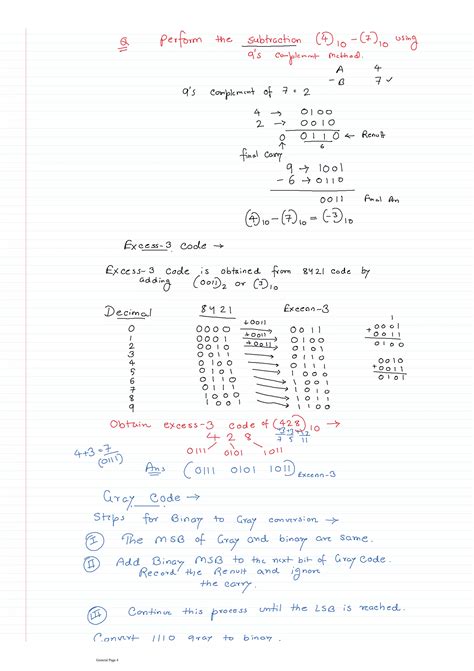 Q Perform the subtraction (4)10 - (7)10 using
9's complement method.
A 4
- B 7 ✓
9's complement of 7 = 2
4 → 0100
2 → 0010
0 0110 ← Result
6
final carry
9 → 1001
- 6 → 0110
0011 Final An
(4)10 - (7)10 = (-3)10
Excess-3 code →
Excess-3 code is obtained from 8421 code by
adding (0011)2 or (3)10
Decimal 8421 Excess-3
0 0000 +0011 0011
1 0001 +0011 0100
2 0010 +0011 0101
3 0011 0110
4 0100 0111
5 0101 1000
6 0110 1001
7 0111 1010
8 1000 1011
9 1001 1100
1
+ 0001
0011
0100
0010
+0011
0101
Obtain excess-3 code of (428)10 →
4 2 8
0111 0101 1011
4+3=7
(0111)
Ans (0111 0101 1011)Excess-3
Gray Code →
Steps for Binary to Gray conversion →
I The MSB of Gray and binary are same.
II Add Binary MSB to the next bit of Gray Code.
Record the Result and ignore
the carry.
III Continue this process until the LSB is reached.
Convert 1110 gray to binary.
General Page 4